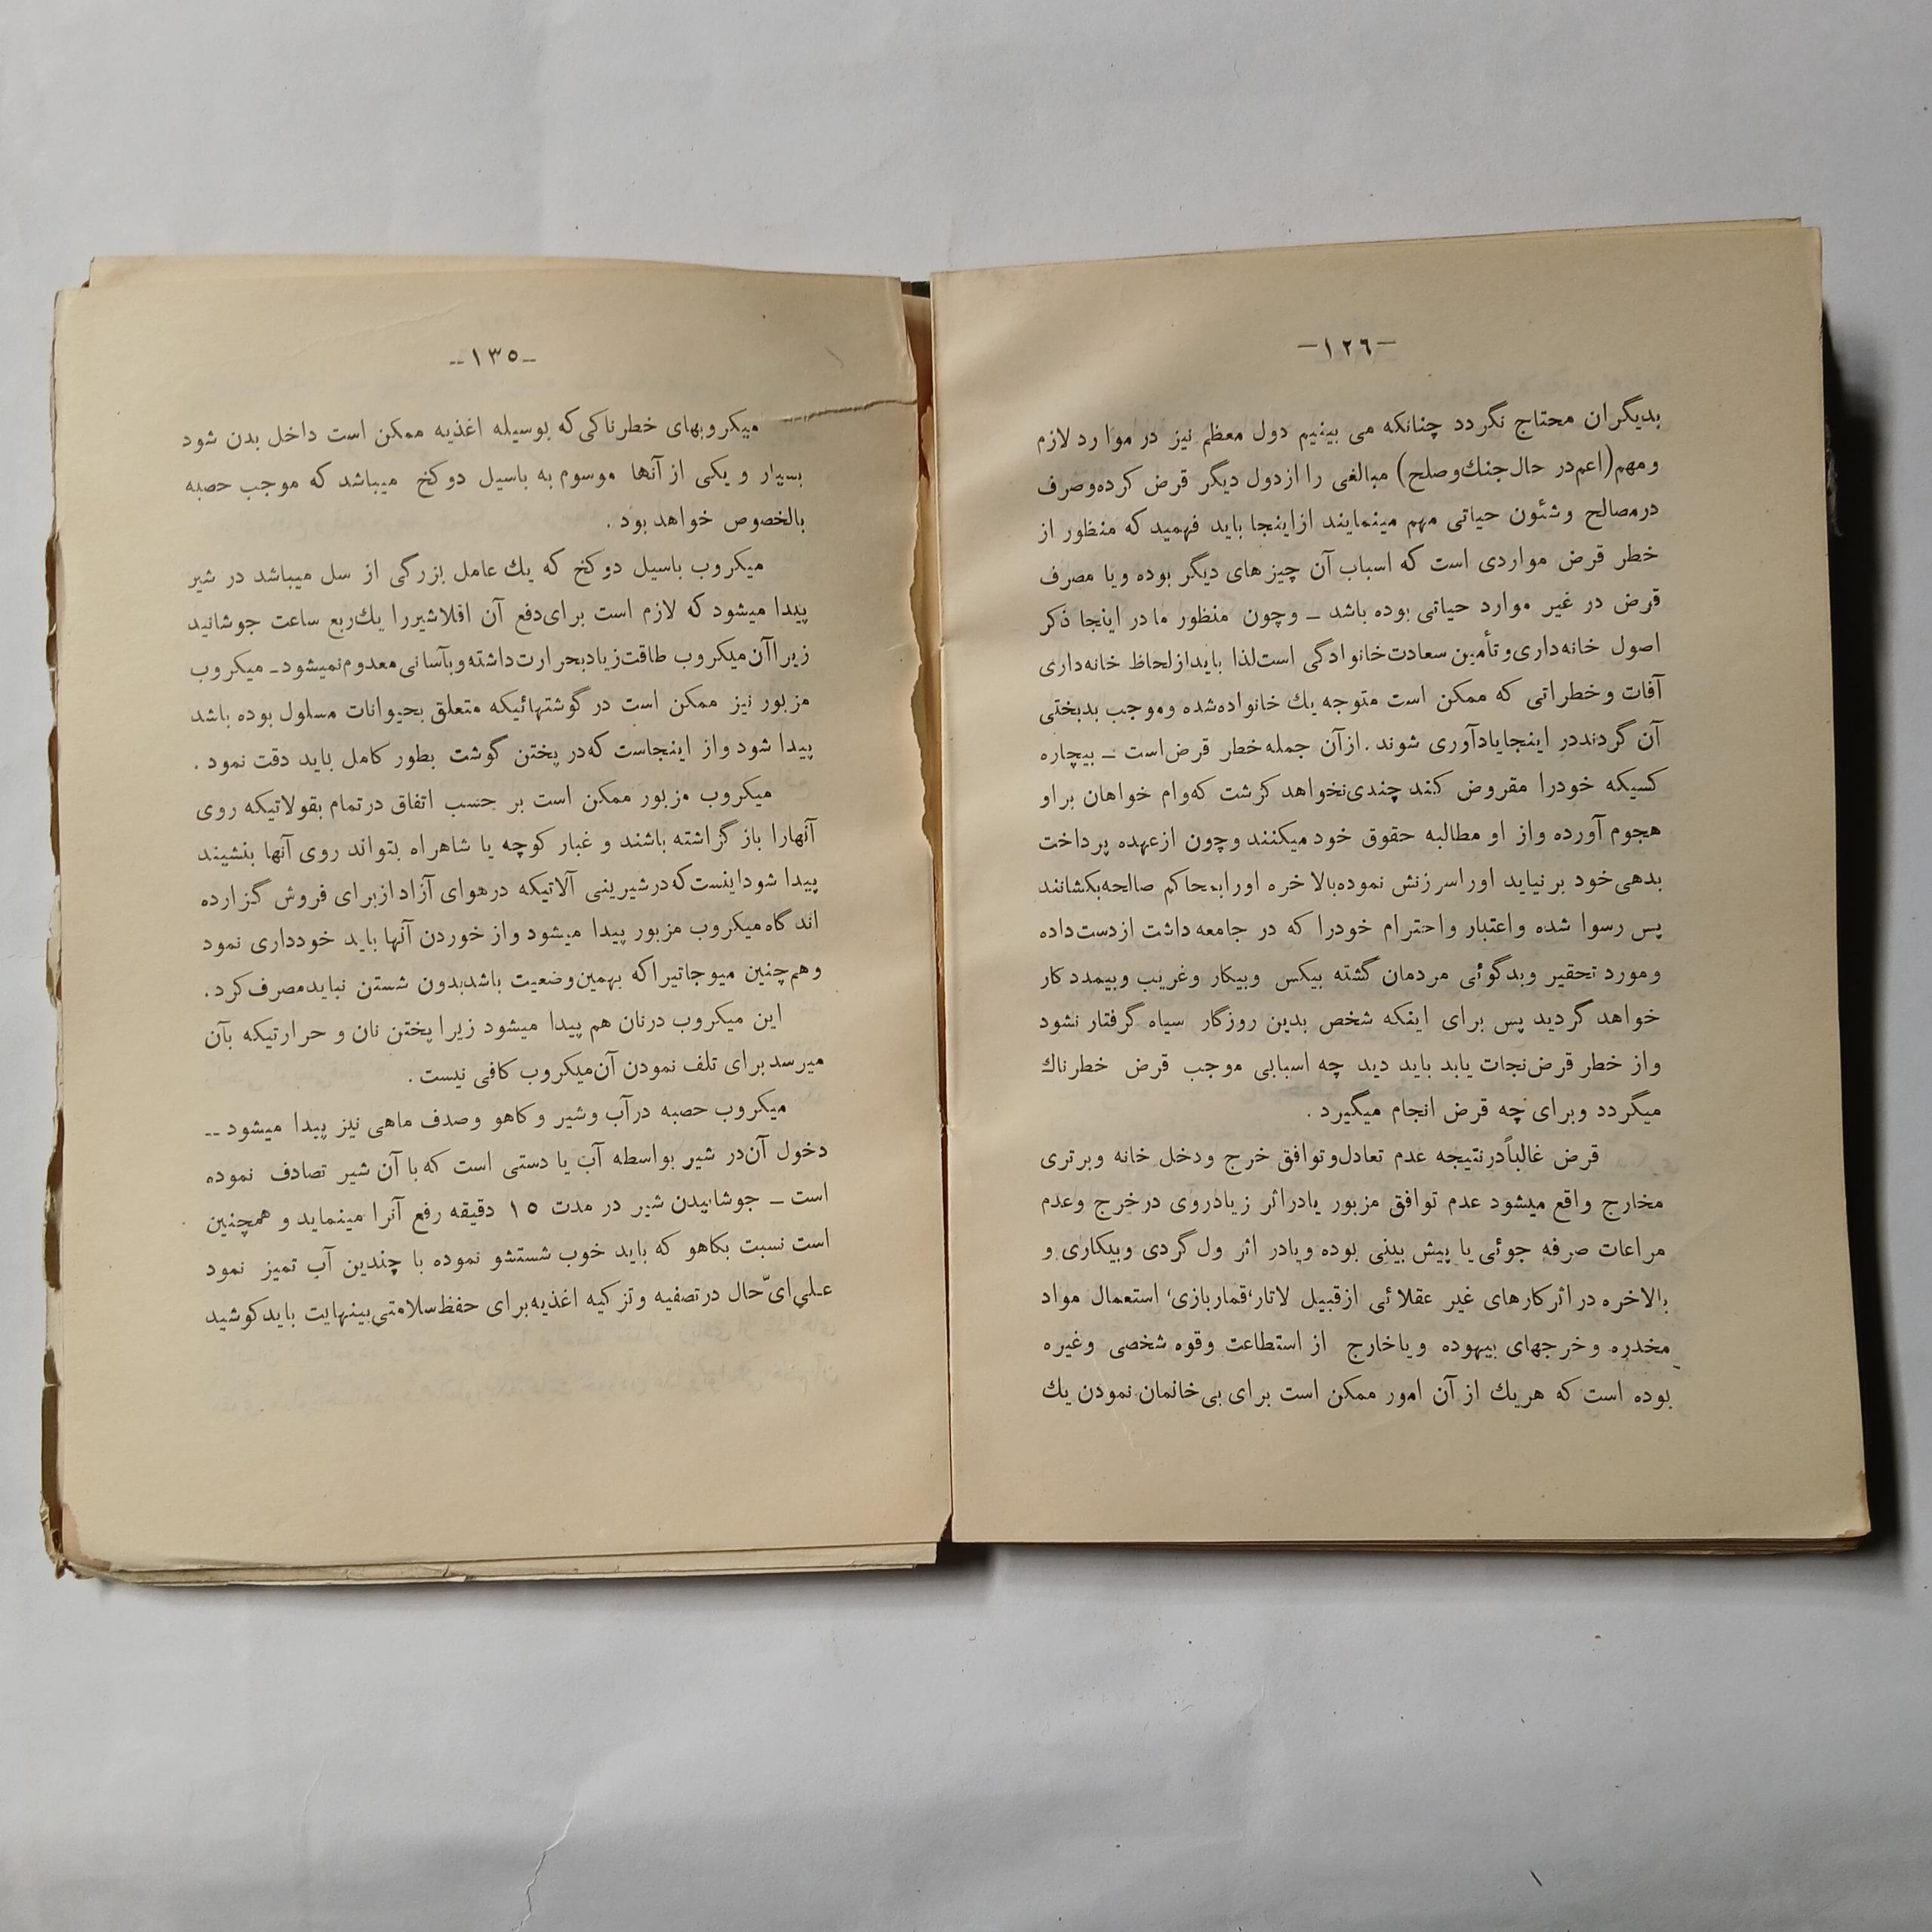 —١٢٦—
بدیگران محتاج نگردد چنانکه می بینیم دول معظم نیز در موارد لازم
ومهم(اعم‌در حال‌جنك‌وصلح) مبالغی را ازدول دیگر قرض کرده‌وصرف
درمصالح وشئون حیاتی مهم مینمایند ازاینجا باید فهمید که منظور از
خطر قرض مواردی است که اسباب آن چیزهای دیگر بوده ویا مصرف
قرض در غیر موارد حیاتی بوده باشد ــ وچون منظور ما در اینجا ذکر
اصول خانه‌داری‌وتأمین سعادت‌خانوادگی است‌لذا بایدازلحاظ خانه‌داری
آفات وخطراتی که ممکن است متوجه یك خانواده‌شده وموجب بدبختی
آن گردنددر اینجایادآوری شوند . ازآن جمله خطر قرض‌است ــ بیچاره
کسیکه خودرا مقروض کند چندی‌نخواهد گرشت که‌وام خواهان براو
هجوم آورده واز او مطالبه حقوق خود میکنند وچون ازعهده پرداخت
بدهی‌خود برنیاید اوراسرزنش نموده‌بالاخره اورابمحاکم صالحه‌بکشانند
پس رسوا شده واعتبار واحترام خودرا که در جامعه داشت ازدست‌داده
ومورد تحقیر وبدگوئی مردمان گشته بیکس وبیکار وغریب وبیمددکار
خواهد گردید پس برای اینکه شخص بدین روزگار سیاه گرفتار نشود
واز خطر قرض‌نجات یابد باید دید چه اسبابی موجب قرض خطرناك
میگردد وبرای چه قرض انجام میگیرد .
قرض غالباًدرنتیجه عدم تعادل‌وتوافق خرج ودخل خانه وبرتری
مخارج واقع میشود عدم توافق مزبور یادراثر زیادروی درخرج وعدم
مراعات صرفه جوئی یا پیش بینی بوده ویادر اثر ول گردی وبیکاری و
بالاخره در اثرکارهای غیر عقلائی ازقبیل لاتار،قماربازی، استعمال مواد
مخدره وخرجهای بیهوده ویاخارج از استطاعت وقوه شخصی وغیره
بوده است که هریك از آن امور ممکن است برای بی‌خانمان نمودن یك
ــ١٣٥ــ
میکروبهای خطرناکی‌که بوسیله اغذیه ممکن است داخل بدن شود
بسیار و یکی از آنها موسوم به باسیل دوکخ میباشد که موجب حصبه
بالخصوص خواهد بود .
میکروب باسیل دوکخ که یك عامل بزرگی از سل میباشد در شیر
پیدا میشود که لازم است برای‌دفع آن اقلاشیررا یك‌ربع ساعت جوشانید
زیراآن‌میکروب طاقت‌زیادبحرارت‌داشته‌وبآسانی‌معدوم‌نمیشود ــ میکروب
مزبور نیز ممکن است در گوشتهائیکه متعلق بحیوانات مسلول بوده باشد
پیدا شود واز اینجاست که‌در پختن گوشت بطور کامل باید دقت نمود .
میکروب مزبور ممکن است بر حسب اتفاق درتمام بقولاتیکه روی
آنهارا باز گزاشته باشند و غبار کوچه یا شاهراه بتواند روی آنها بنشیند
پیدا شوداینست‌که‌درشیرینی آلاتیکه درهوای آزاد ازبرای فروش گزارده
اند گاه‌میکروب مزبور پیدا میشود واز خوردن آنها باید خودداری نمود
وهم‌چنین میوجاتیراکه بهمین‌وضعیت باشدبدون شستن نبایدمصرف‌کرد .
این میکروب درنان هم پیدا میشود زیرا پختن نان و حرارتیکه بآن
میرسد برای تلف نمودن آن‌میکروب کافی نیست .
میکروب حصبه درآب وشیر وکاهو وصدف ماهی نیز پیدا میشود ــ
دخول آن‌در شیر بواسطه آب یا دستی است که با آن شیر تصادف نموده
است ــ جوشانیدن شیر در مدت ١٥ دقیقه رفع آنرا مینماید و همچنین
است نسبت بکاهو که باید خوب شستشو نموده با چندین آب تمیز نمود
علی‌ایّ‌حال درتصفیه وتزکیه اغذیه‌برای حفظ‌سلامتی‌بینهایت بایدکوشید